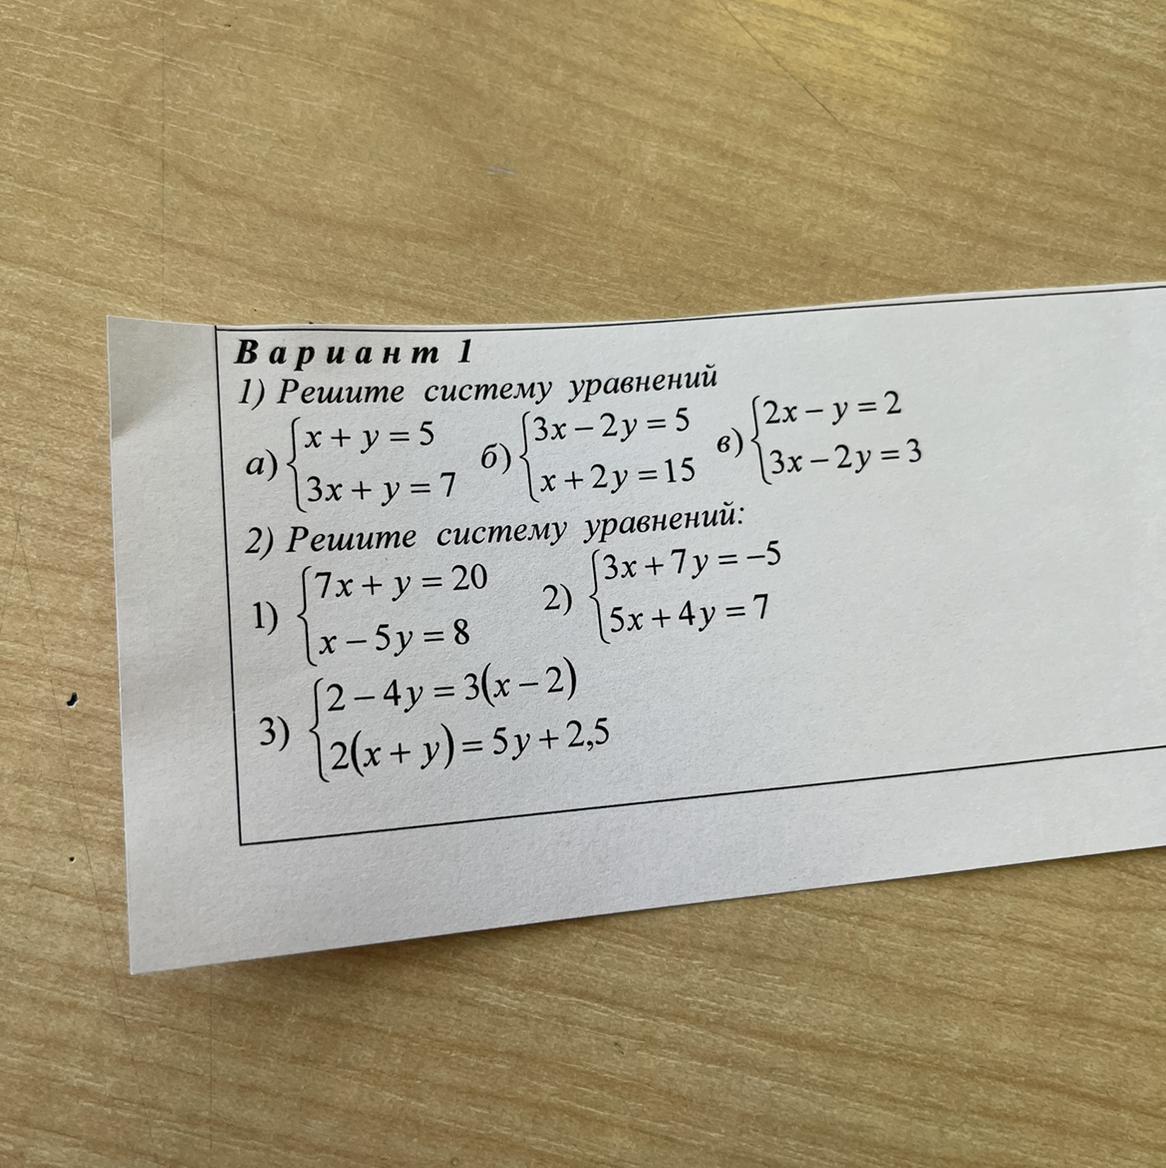 Вариант 1
1) Решите систему уравнений
а) { x + y = 5 б) { 3x − 2y = 5 в) { 2x − y = 2
3x + y = 7 x + 2y = 15 3x − 2y = 3
2) Решите систему уравнений:
1) { 7x + y = 20 2) { 3x + 7y = −5
x − 5y = 8 5x + 4y = 7
3) { 2 − 4y = 3(x − 2)
2(x + y) = 5y + 2,5